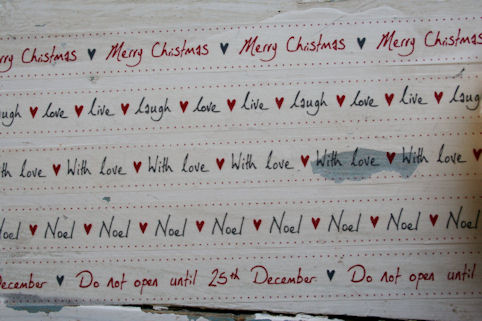 rry Christmas ♥ Merry Christmas ♥ Merry Christmas ♥ Merry Chris
augh ♥ love ♥ live ♥ laugh ♥ love ♥ live ♥ laugh ♥ love ♥ live ♥ laug
th love ♥ With love ♥ With love ♥ With love ♥ With love ♥ With love ♥
Noel ♥ Noel ♥ Noel ♥ Noel ♥ Noel ♥ Noel ♥ Noel ♥ Noel ♥ Noel
December ♥ Do not open until 25th December ♥ Do not open until